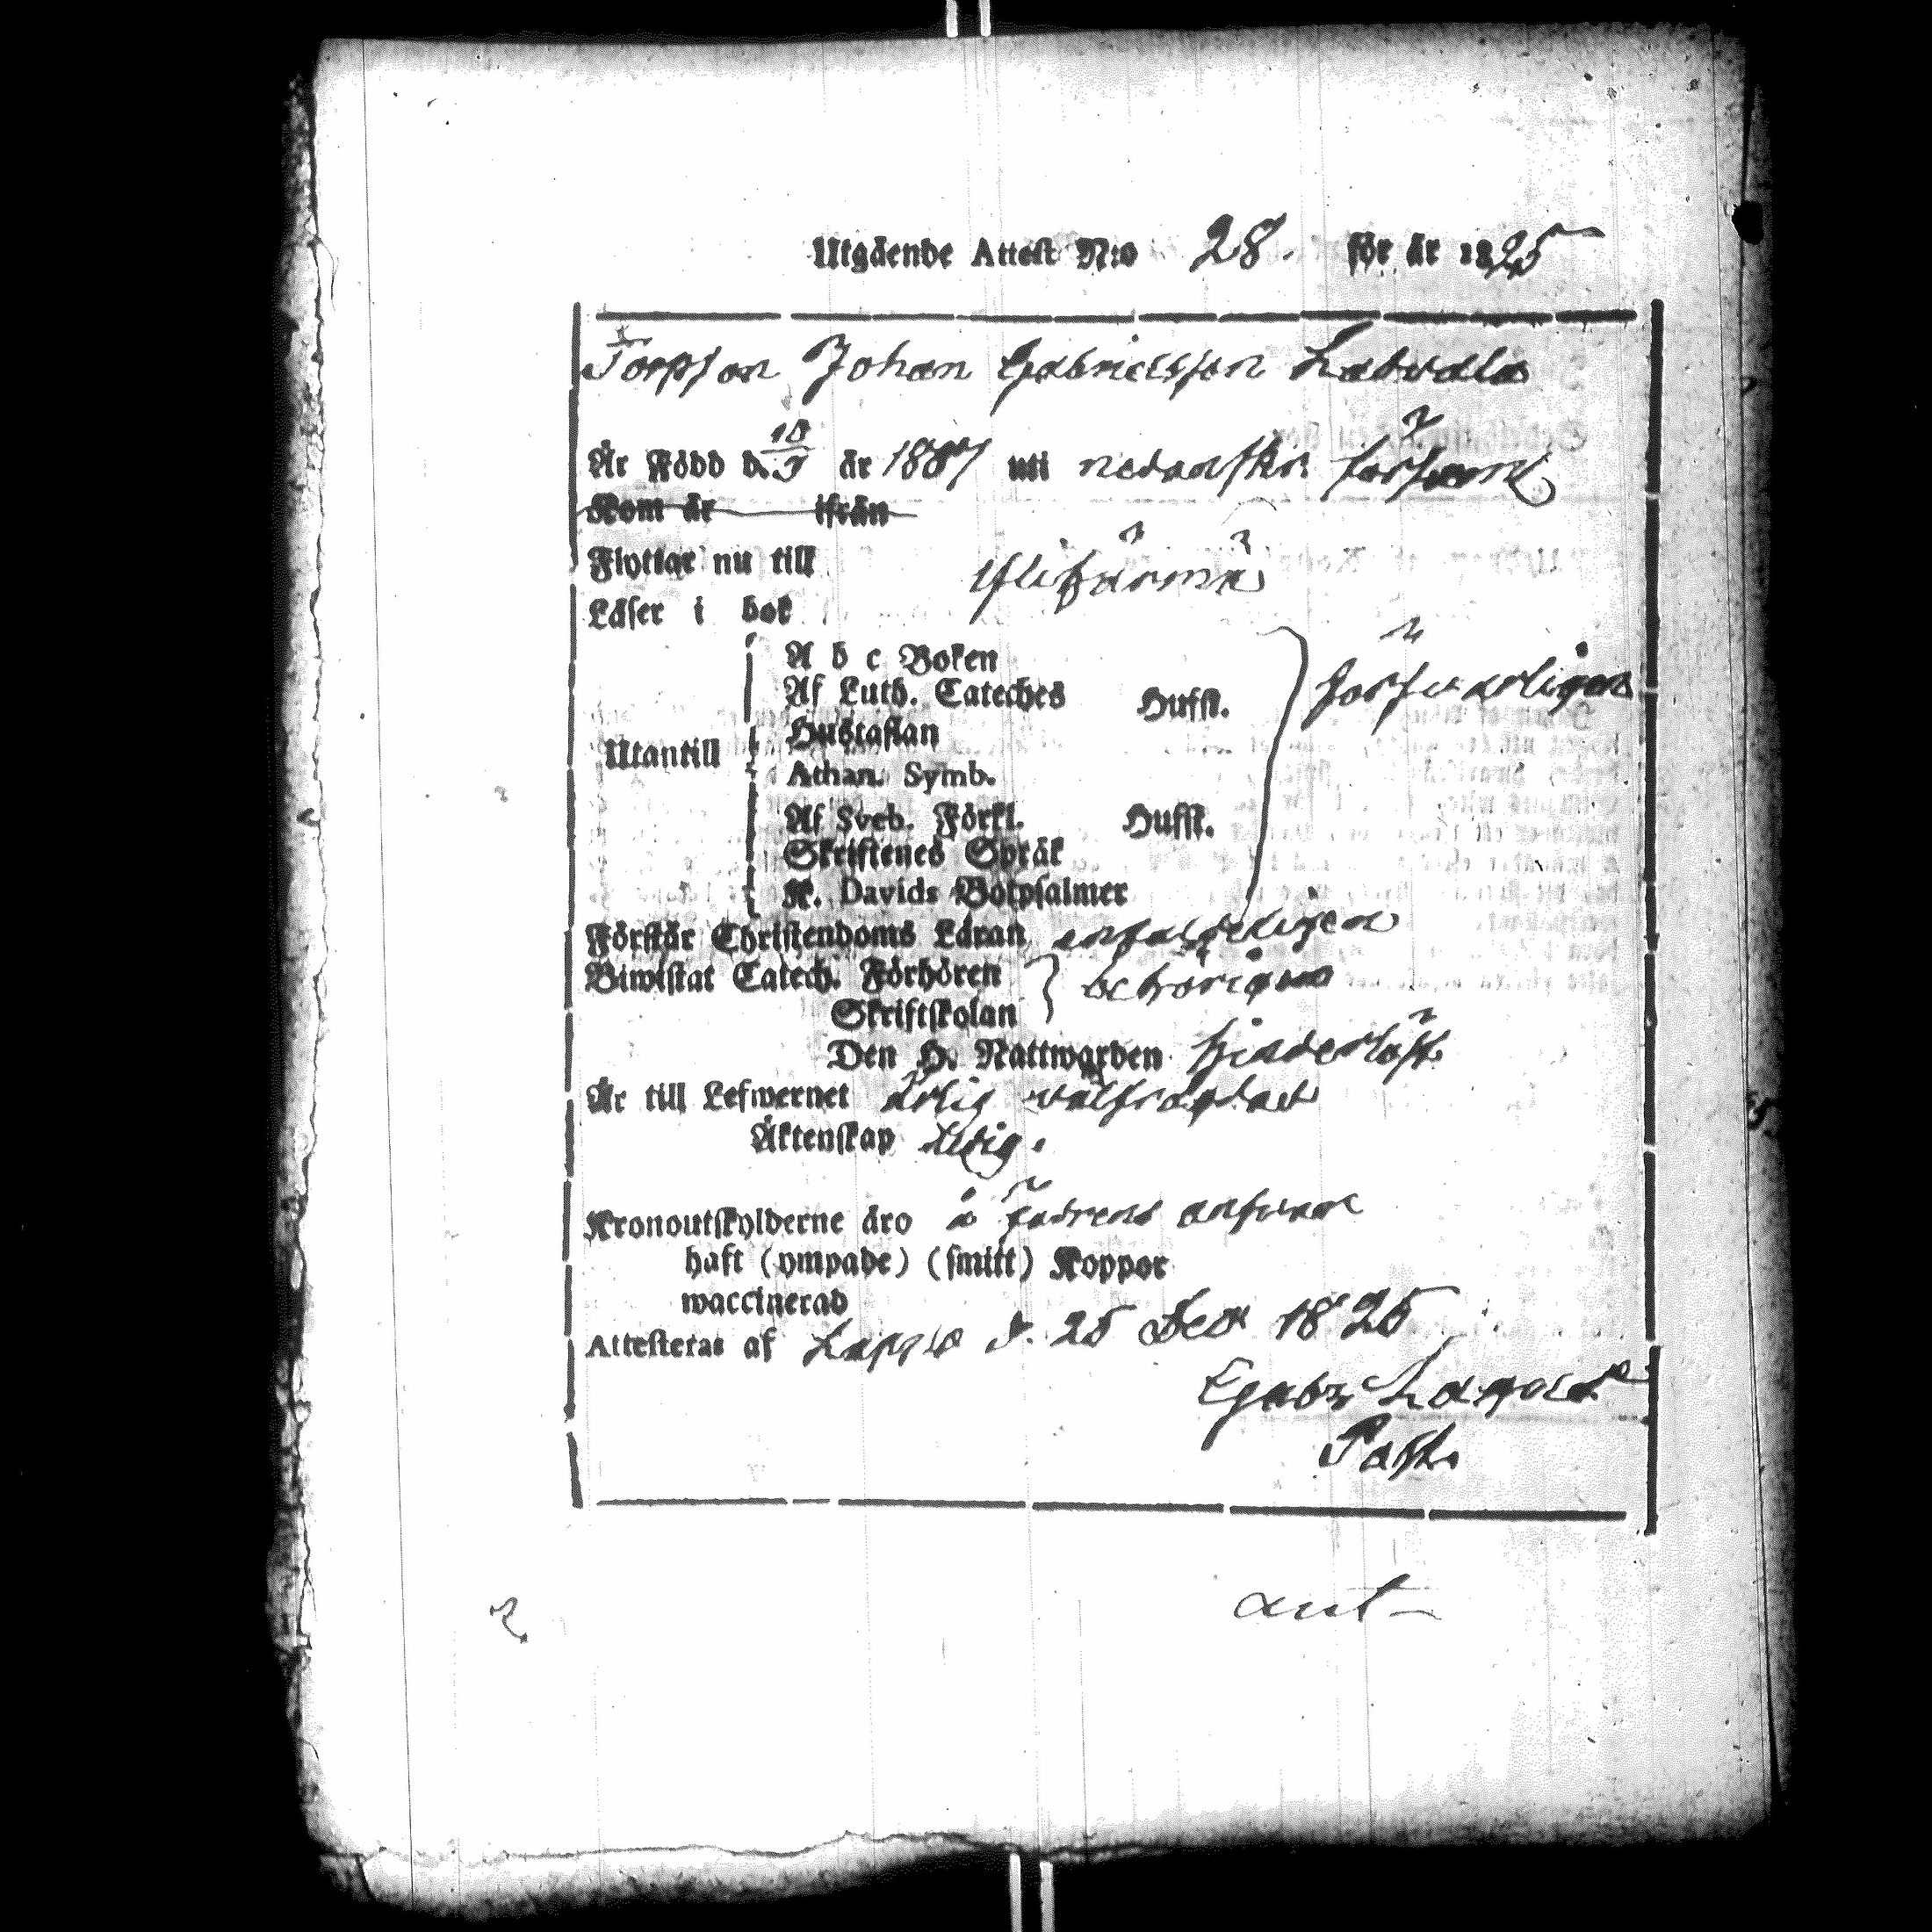 Utgående Attest N:o 28. för år 1825
Torpson Johan Gabrielsson
Är Född d. 10/5 år 1807 uti nedanskr. församl
Kom år ifrån
Flyttar nu till Ylihärmä
Läser i bok
A b c Boken
Af Luth. Cateches Hufst. försvarligen
Utantill Hustaflan
Athan. Symb.
Af Sveb. Förkl. Hufst.
Skriftenes Språk
K. Davids Botpsalmer
Förstår Christendoms Läran enfaldeligen
Biwistat Catech. Förhören behörigen
Skriftskolan
Den H. Nattwarden hinderlöst.
Är till Lefwernet ärlig wälfrägdad
Äktenskap ledig.
Kronoutskylderne äro å fadrens answar
haft (ympade) (smitt) Koppor
waccinerad
Attesteras af Lappo d. 25 1825
Gabr. Lagus
Past.